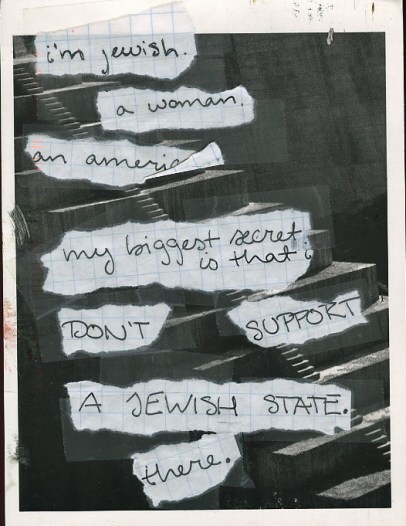 i'm jewish.
a woman.
an america
my biggest secret
is that i
DON'T SUPPORT
A JEWISH STATE.
there.